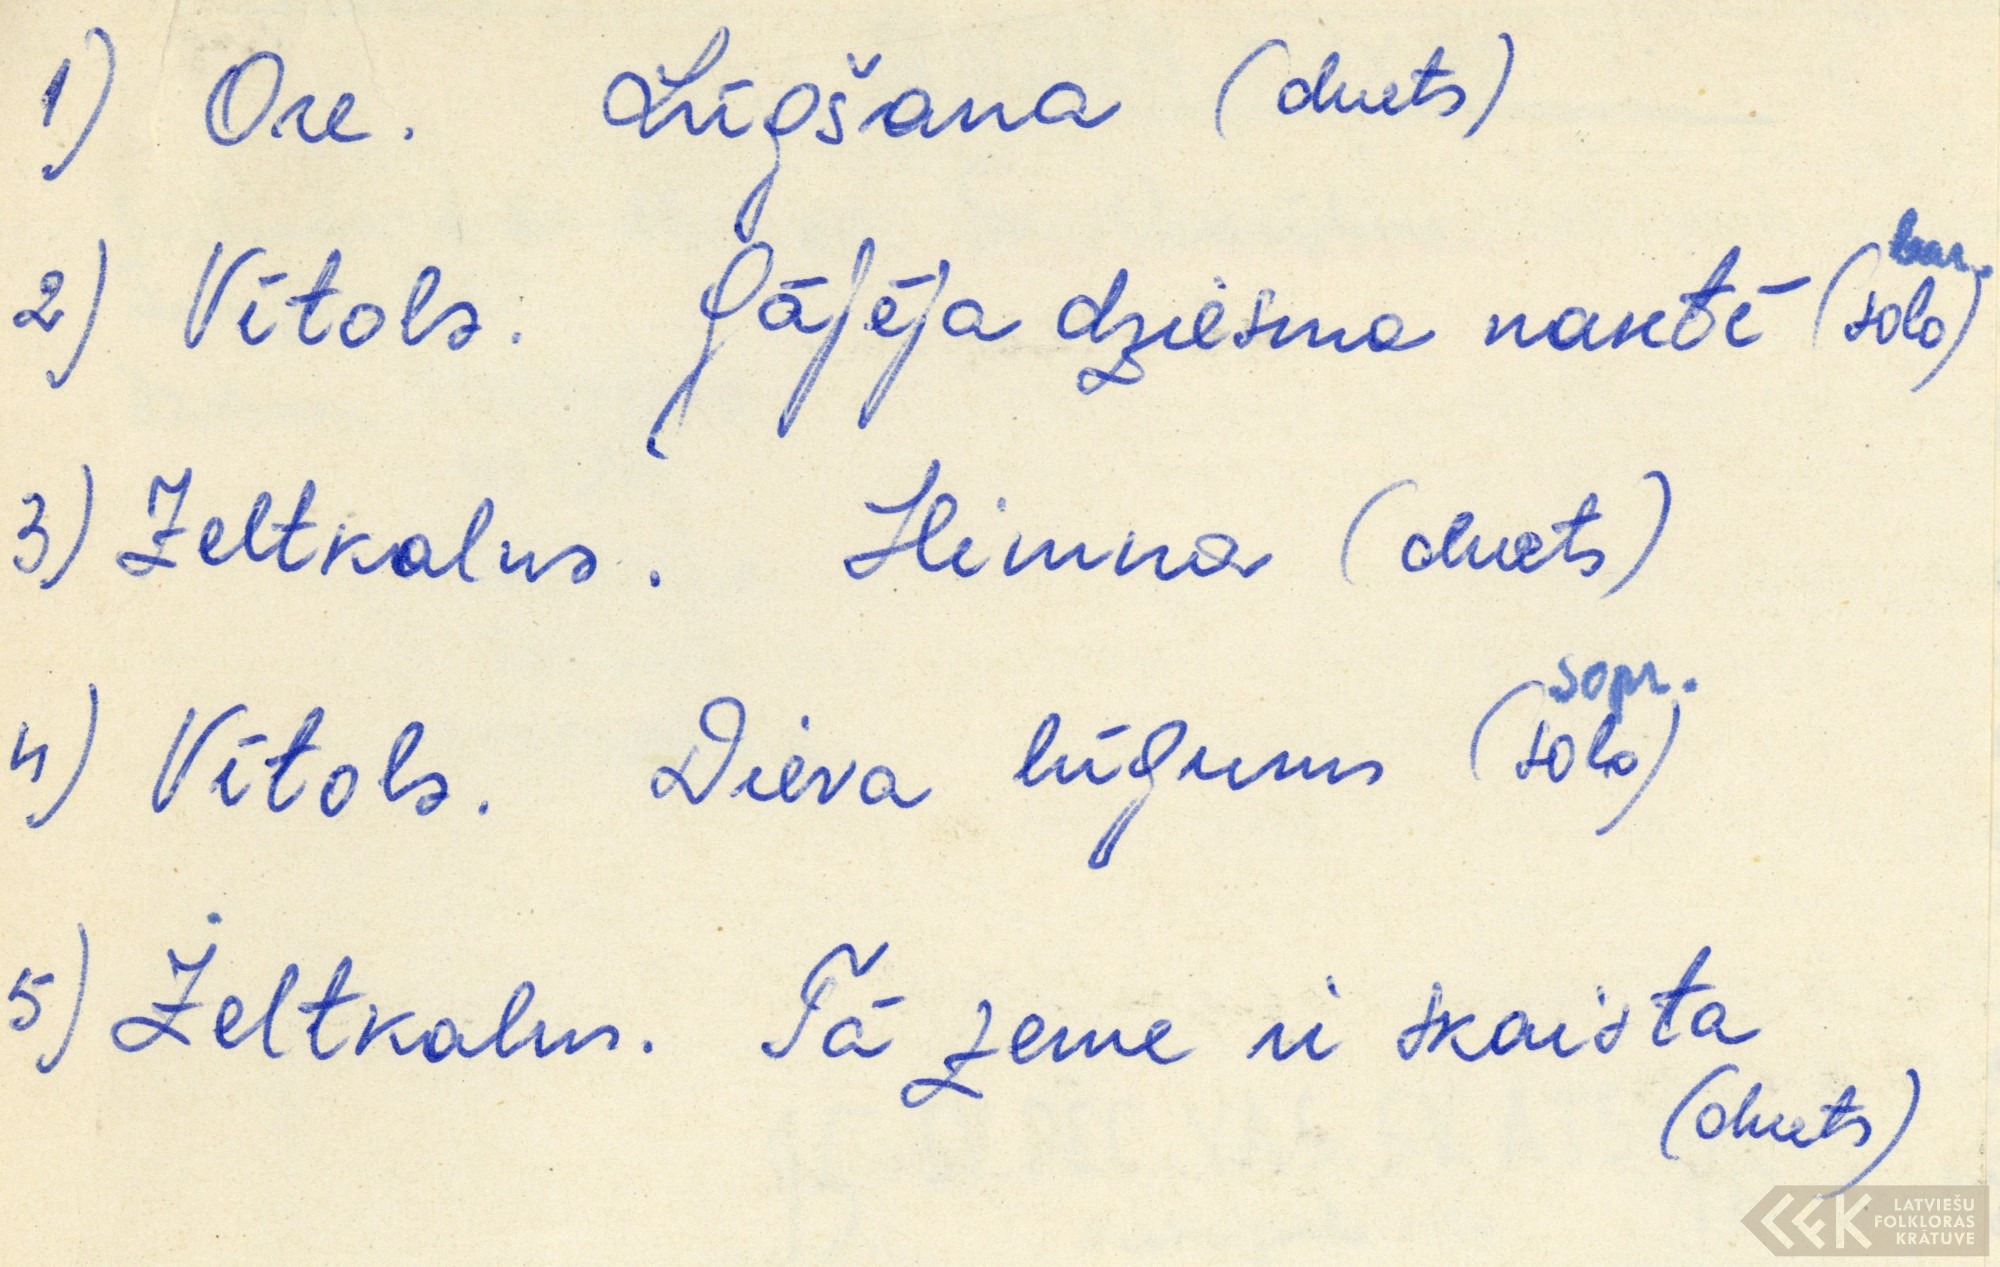 1) Ore. Lūgšana (duets)
2) Vītols. Gājēja dziesma naktī (bar. solo)
3) Zeltkalns. Himna (duets)
4) Vītols. Dieva lūgums (sopr. solo)
5) Zeltkalns. Tā zeme ir skaista
(duets)
LATVIEŠU
FOLKLORAS
KRĀTUVE